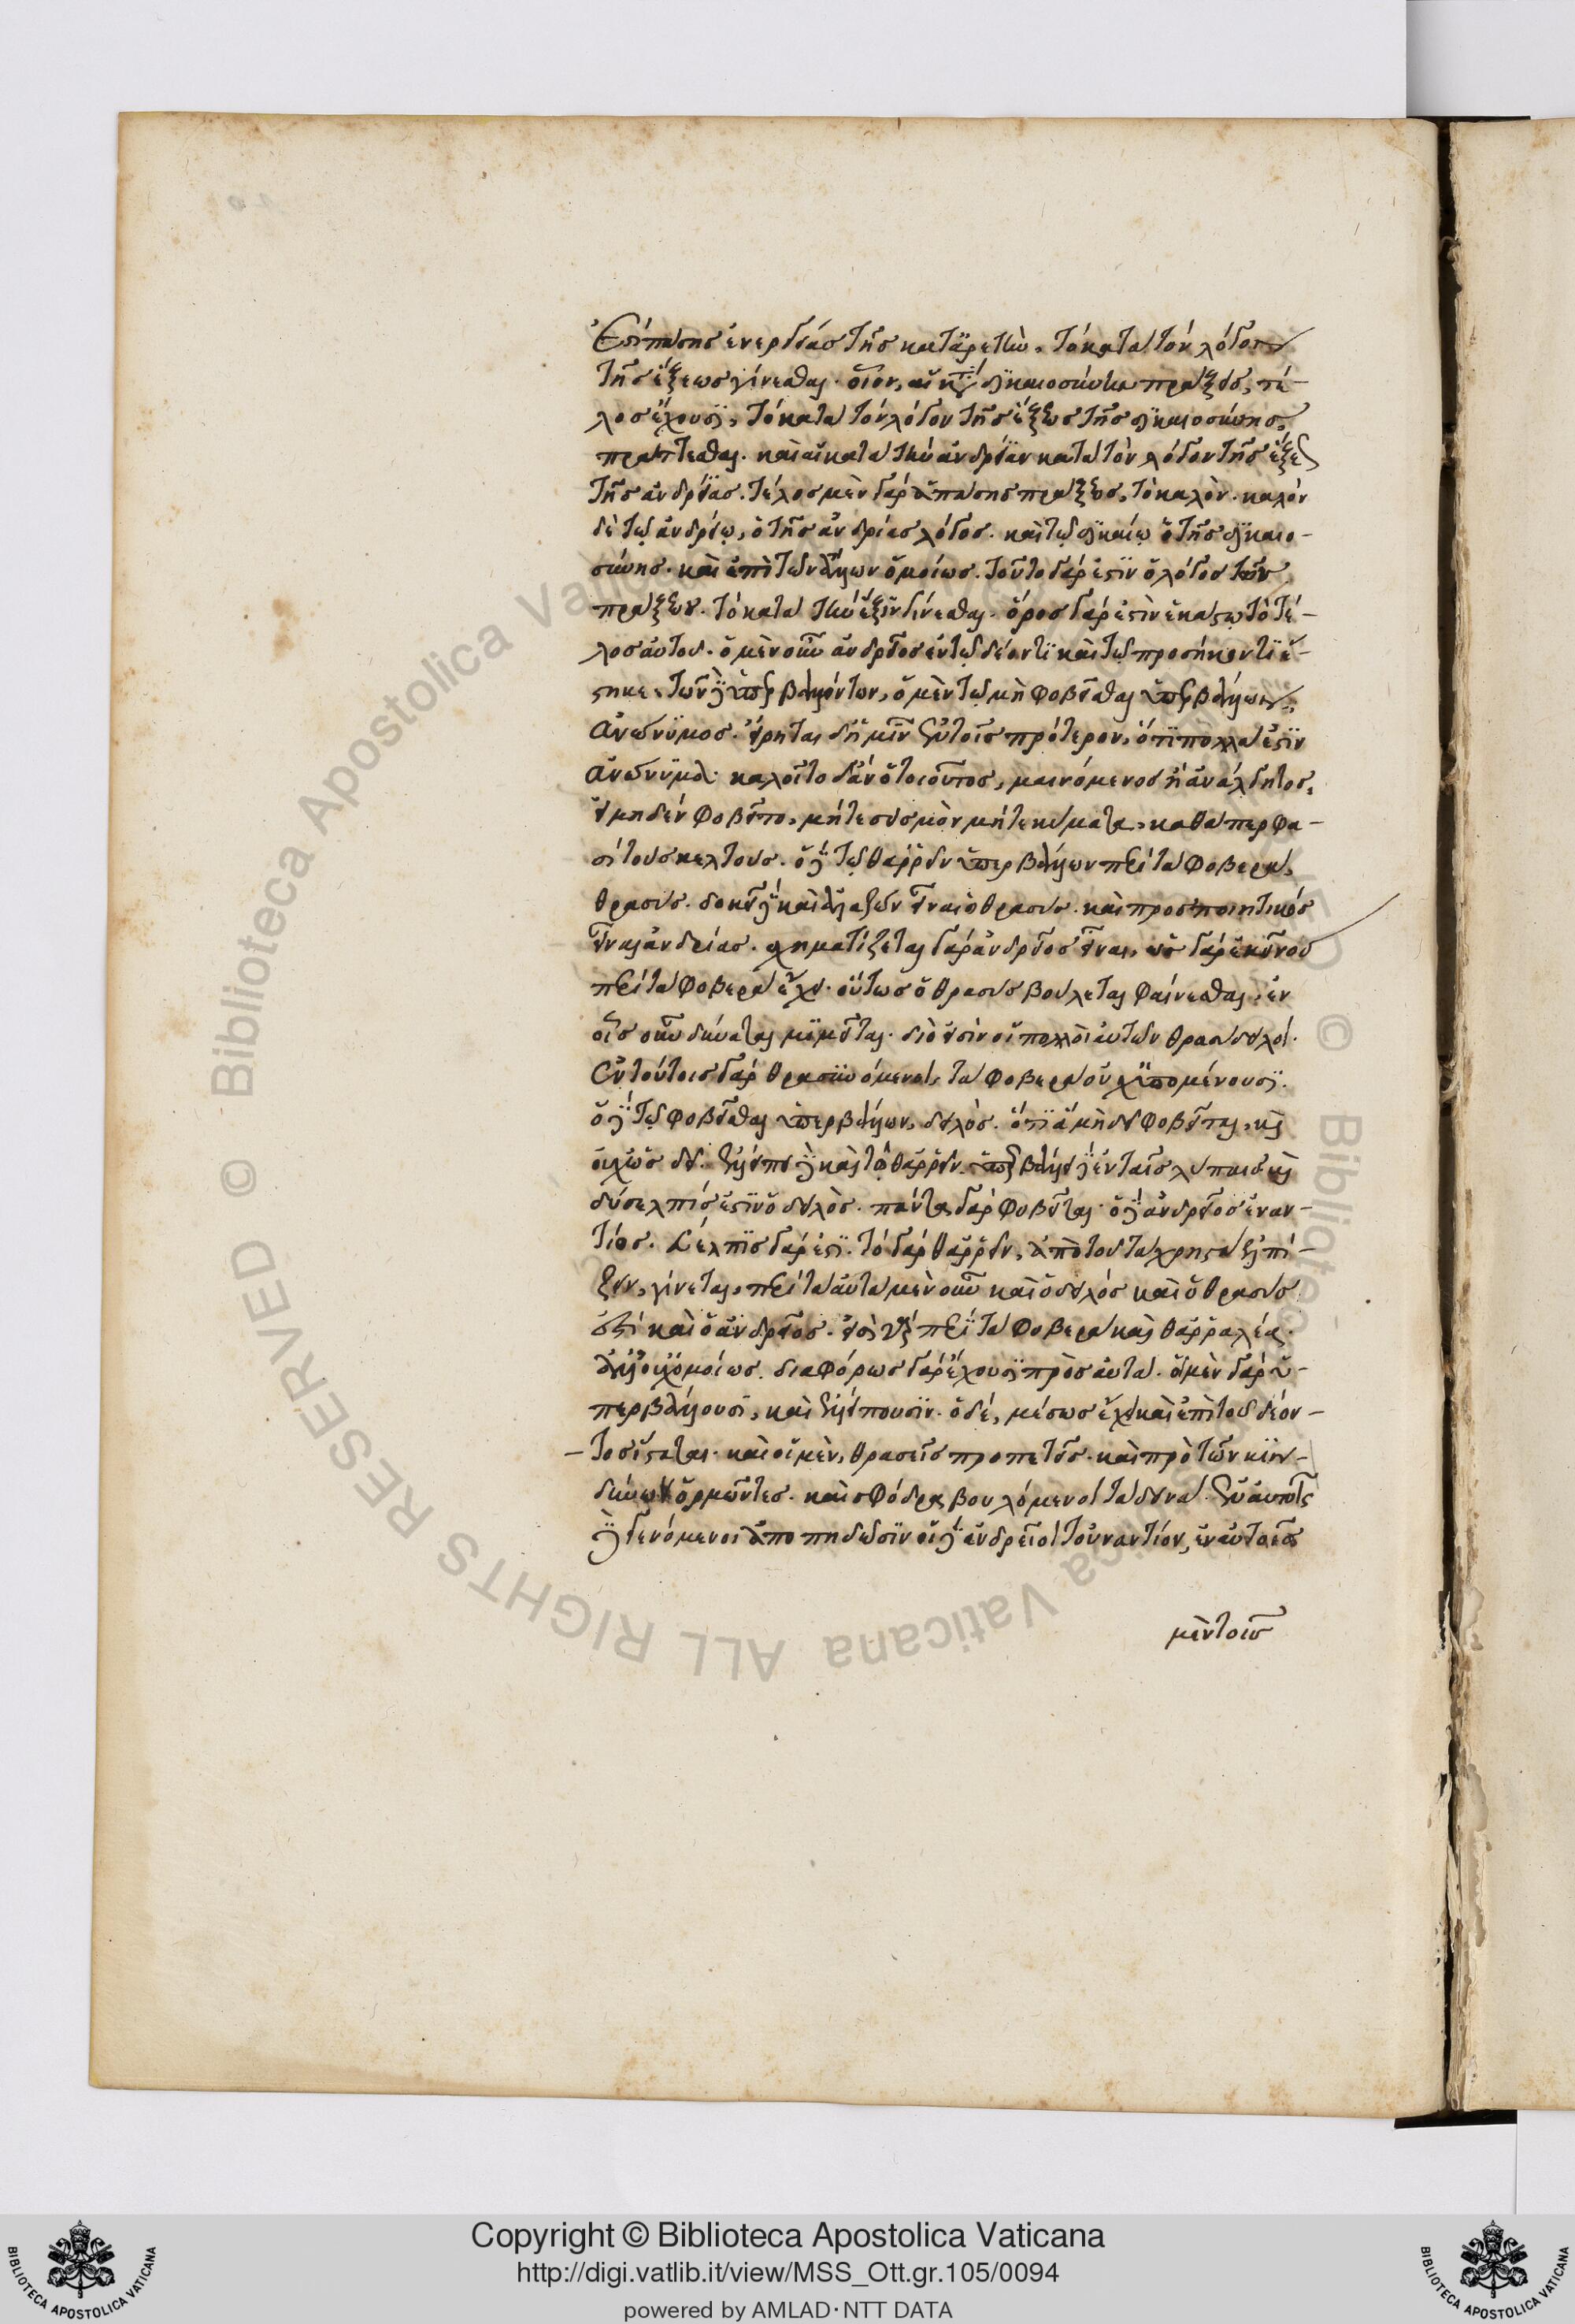 ἐστὶ πάσης ἐνεργείας τῆς κατ' ἀρετὴν, τὸ κατὰ τὸν λόγον
τῆς ἕξεως γίνεσθαι. οἷον, αἱ κατὰ δικαιοσύνην πράξεις, τέ-
λος ἔχουσι, τὸ κατὰ τὸν λόγον τῆς ἕξεως τῆς δικαιοσύνης
πράττεσθαι. καὶ αἱ κατὰ τὴν ἀνδρείαν κατὰ τὸν λόγον τῆς ἕξεως
τῆς ἀνδρείας. τέλος μὲν γὰρ ἁπάσης πράξεως, τὸ καλὸν. καλὸν
δὲ τῷ ἀνδρείῳ, ὁ τῆς ἀνδρίας λόγος. καὶ τῷ δικαίῳ ὁ τῆς δικαιο-
σύνης. καὶ ἐπὶ τῶν ἄλλων ὁμοίως. τοῦτο γάρ ἐστιν ὁ λόγος τῶν
πράξεων. τὸ κατὰ τὴν ἕξιν γίνεσθαι. ὅρος γάρ ἐστὶν ἑκάστῳ τὸ τέ-
λος αὐτοῦ. ὁ μὲν οὖν ἀνδρεῖος ἐν τῷ δέοντι καὶ τῷ προσήκοντι ἕ-
στηκε. τῶν δὲ ὑπερβαλλόντων, ὁ μὲν τῷ μὴ φοβεῖσθαι ὑπερβάλλων,
ἀνώνυμος. εἴρηται δ' ἡμῖν ἐν τοῖς πρότερον, ὅτι πολλά ἐστιν
ἀνώνυμα. καλοῖτο δ' ἂν ὁ τοιοῦτος, μαινόμενος ἢ ἀνάλγητος,
εἰ μηδὲν φοβεῖτο, μήτε σεισμὸν μήτε κύματα, καθάπερ φα-
σὶ τοὺς κελτούς. ὁ δὲ τῷ θαῤῥεῖν ὑπερβάλλων περὶ τὰ φοβερὰ,
θρασύς. δοκεῖ δὲ καὶ ἀλαζὼν εἶναι ὁ θρασύς. καὶ προσποιητικός
εἶναι ἀνδρίας. σχηματίζεται γὰρ ἀνδρεῖος εἶναι, ὡς γὰρ ἐκεῖνος
περὶ τὰ φοβερὰ ἔχει. οὕτως ὁ θρασὺς βούλεται φαίνεσθαι. ἐν
οἷς οὖν δύναται μιμεῖται. διὸ εἰσὶν οἱ πολλοὶ αὐτῶν θρασύδειλοι.
ἐν τούτοις γὰρ θρασυνόμενοι, τὰ φοβερὰ οὐχ ὑπομένουσι.
ὁ δὲ τῷ φοβεῖσθαι ὑπερβάλλων, δειλός. ὅτι ἃ μὴ δεῖ φοβεῖται, καὶ
οὐχ ὡς δεῖ. ἐλλείπει δὲ καὶ τῷ θαῤῥεῖν. ὑπερβάλλει δὲ ἐν ταῖς λύπαις καὶ
δύσελπίς ἐστιν ὁ δειλὸς. πάντα γὰρ φοβεῖται. ὁ δὲ ἀνδρεῖος ἐναν-
τίος. εὔελπις γάρ ἐστι. τὸ γὰρ θαῤῥεῖν, ἀπὸ τοῦ τὰ χρηστὰ ἐλπί-
ζειν, γίνεται, περὶ τὰ αὐτὰ μὲν οὖν καὶ ὁ δειλός καὶ ὁ θρασύς
ἐστὶ καὶ ὁ ἀνδρεῖος. εἰσὶ γὰρ περὶ τὰ φοβερὰ καὶ θαῤῥαλέα.
ἀλλ' οὐχ ὁμοίως. διαφόρως γὰρ ἔχουσι πρὸς αὐτά. οἱ μὲν γὰρ ὑ-
περβάλλουσι, καὶ ἐλλείπουσιν. ὁ δέ, μέσως ἔχει καὶ ἐπὶ τοῦ δέον-
τος ἵσταται. καὶ οἱ μὲν, θρασεῖς προπετεῖς. καὶ πρὸ τῶν κιν-
δύνων ὁρμῶντες. καὶ σφόδρα βουλόμενοι τὰ δεινά. ἐν αὐτοῖς
δὲ γενόμενοι ἀποπηδῶσιν οἱ δὲ ἀνδρεῖοι τοὐναντίον, ἐν αὐτοῖς
μὲν τοῖς
Copyright © Biblioteca Apostolica Vaticana
http://digi.vatlib.it/view/MSS_Ott.gr.105/0094
powered by AMLAD·NTT DATA